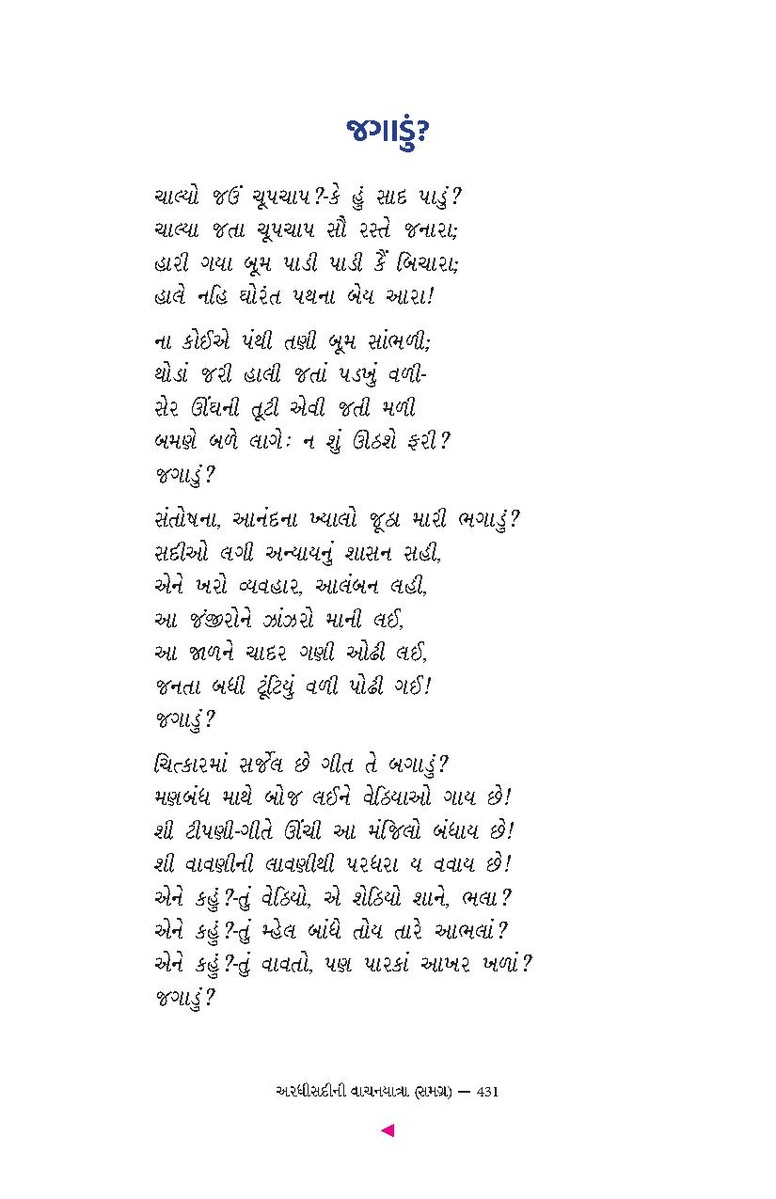 જગાડું?
ચાલ્યો જઉં ચૂપચાપ?-કે હું સાદ પાડું?
ચાલ્યા જતા ચૂપચાપ સૌ રસ્તે જનારા;
હારી ગયા બૂમ પાડી પાડી કૈં બિચારા;
હાલે નહિ ઘોરંત પથના બેય આરા!
ના કોઈએ પંથી તણી બૂમ સાંભળી;
થોડાં જરી હાલી જતાં પડખું વળી-
સેર ઊંઘની તૂટી એવી જતી મળી
બમણે બળે લાગેઃ ન શું ઊઠશે ફરી?
જગાડું?
સંતોષના, આનંદના ખ્યાલો જૂઠા મારી ભગાડું?
સદીઓ લગી અન્યાયનું શાસન સહી,
એને ખરો વ્યવહાર, આલંબન લહી,
આ જંજીરોને ઝાંઝરો માની લઈ,
આ જાળને ચાદર ગણી ઓઢી લઈ,
જનતા બધી ટૂંટિયું વળી પોઢી ગઈ!
જગાડું?
ચિત્કારમાં સર્જેલ છે ગીત તે બગાડું?
મણબંધ માથે બોજ લઈને વેઠિયાઓ ગાય છે!
શી ટીપણી-ગીતે ઊંચી આ મંજિલો બંધાય છે!
શી વાવણીની લાવણીથી પરધરા ય વવાય છે!
એને કહું?-તું વેઠિયો, એ શેઠિયો શાને, ભલા?
એને કહું?-તું મ્હેલ બાંધે તોય તારે આભલાં?
એને કહું?-તું વાવતો, પણ પારકાં આખર ખળાં?
જગાડું?
અરધીસદીની વાચનયાત્રા (સમગ્ર) — 431